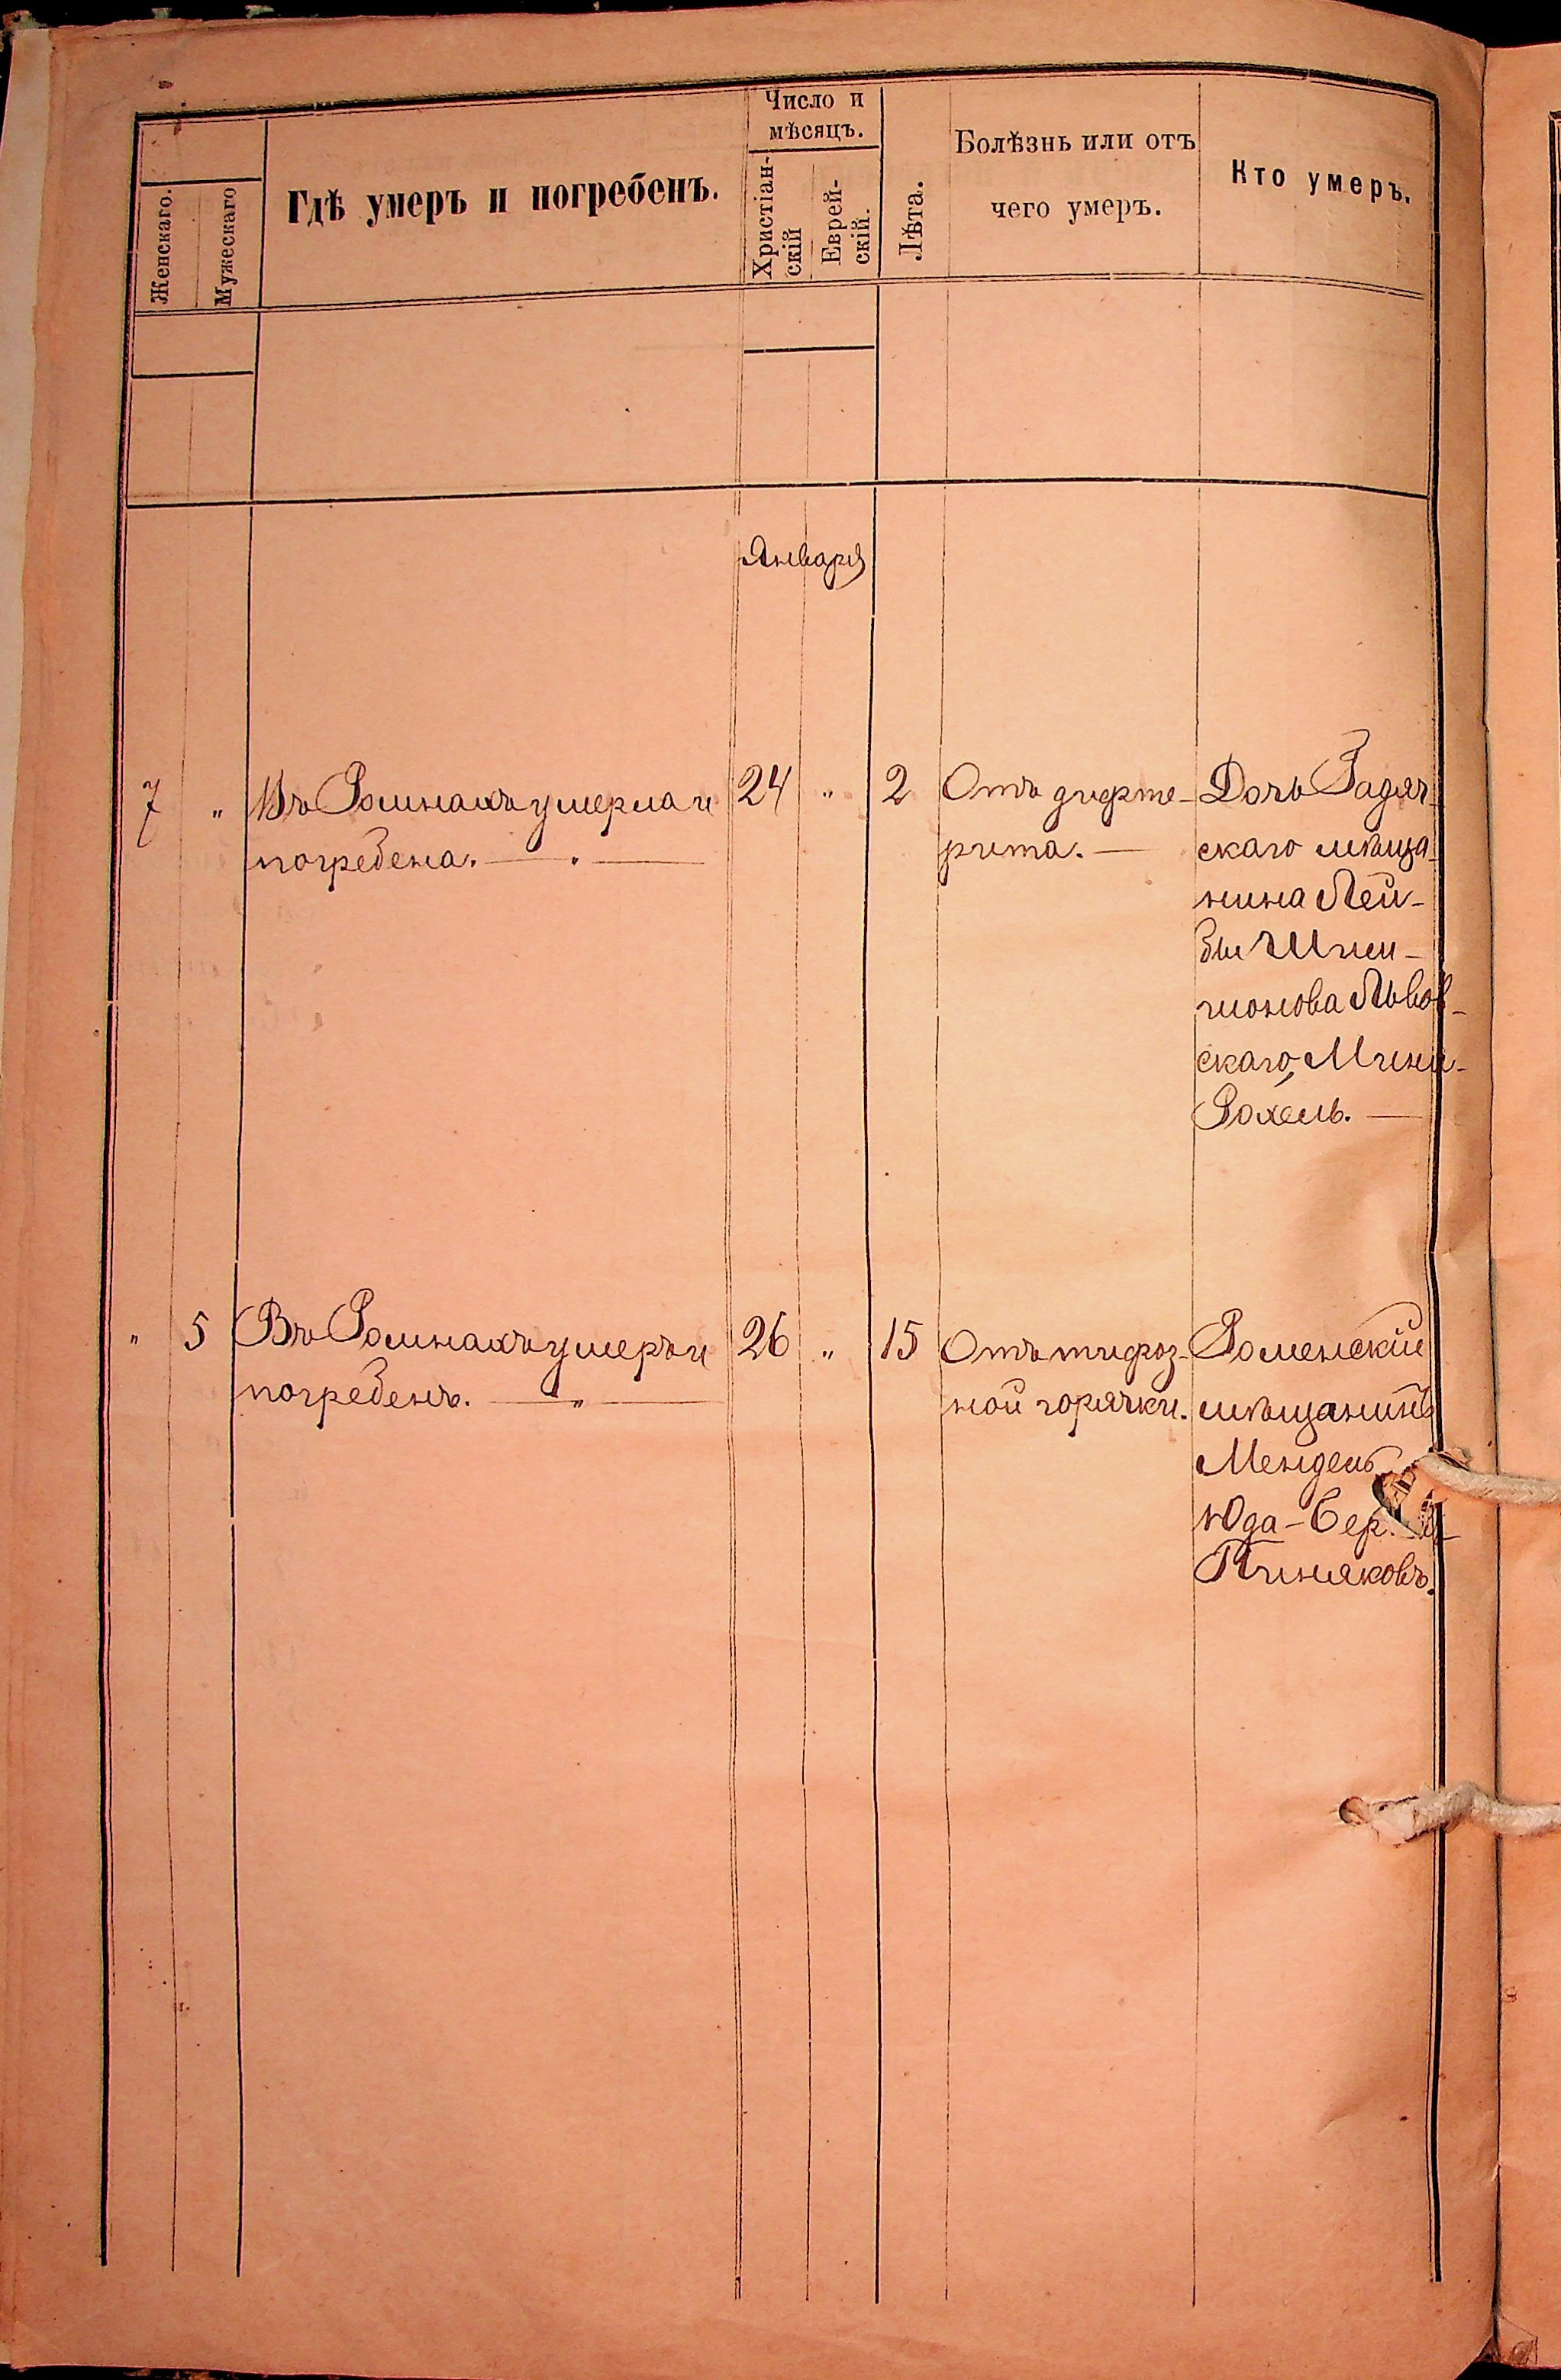 Женскаго.
Мужескаго
Гдѣ умеръ и погребенъ.
Число и
мѣсяцъ.
Христіан-
скій
Еврей-
скій.
Лѣта.
Болѣзнь или отъ
чего умеръ.
Кто умеръ.
Января
7 " Въ Ромнахъ умерла и
погребена.
24 " 2
Отъ дифте-
рита.
Дочь Гадяч-
скаго мѣща-
нина Лей-
бы
монова Львов-
скаго, Мини-
Рохель.
" 5 Въ Ромнахъ умеръ и
погребенъ. "
26 " 15
Отъ тифоз-
ной горячки.
Роменскій
мѣщанинъ
Мендель
Юда-
Пиняковъ.